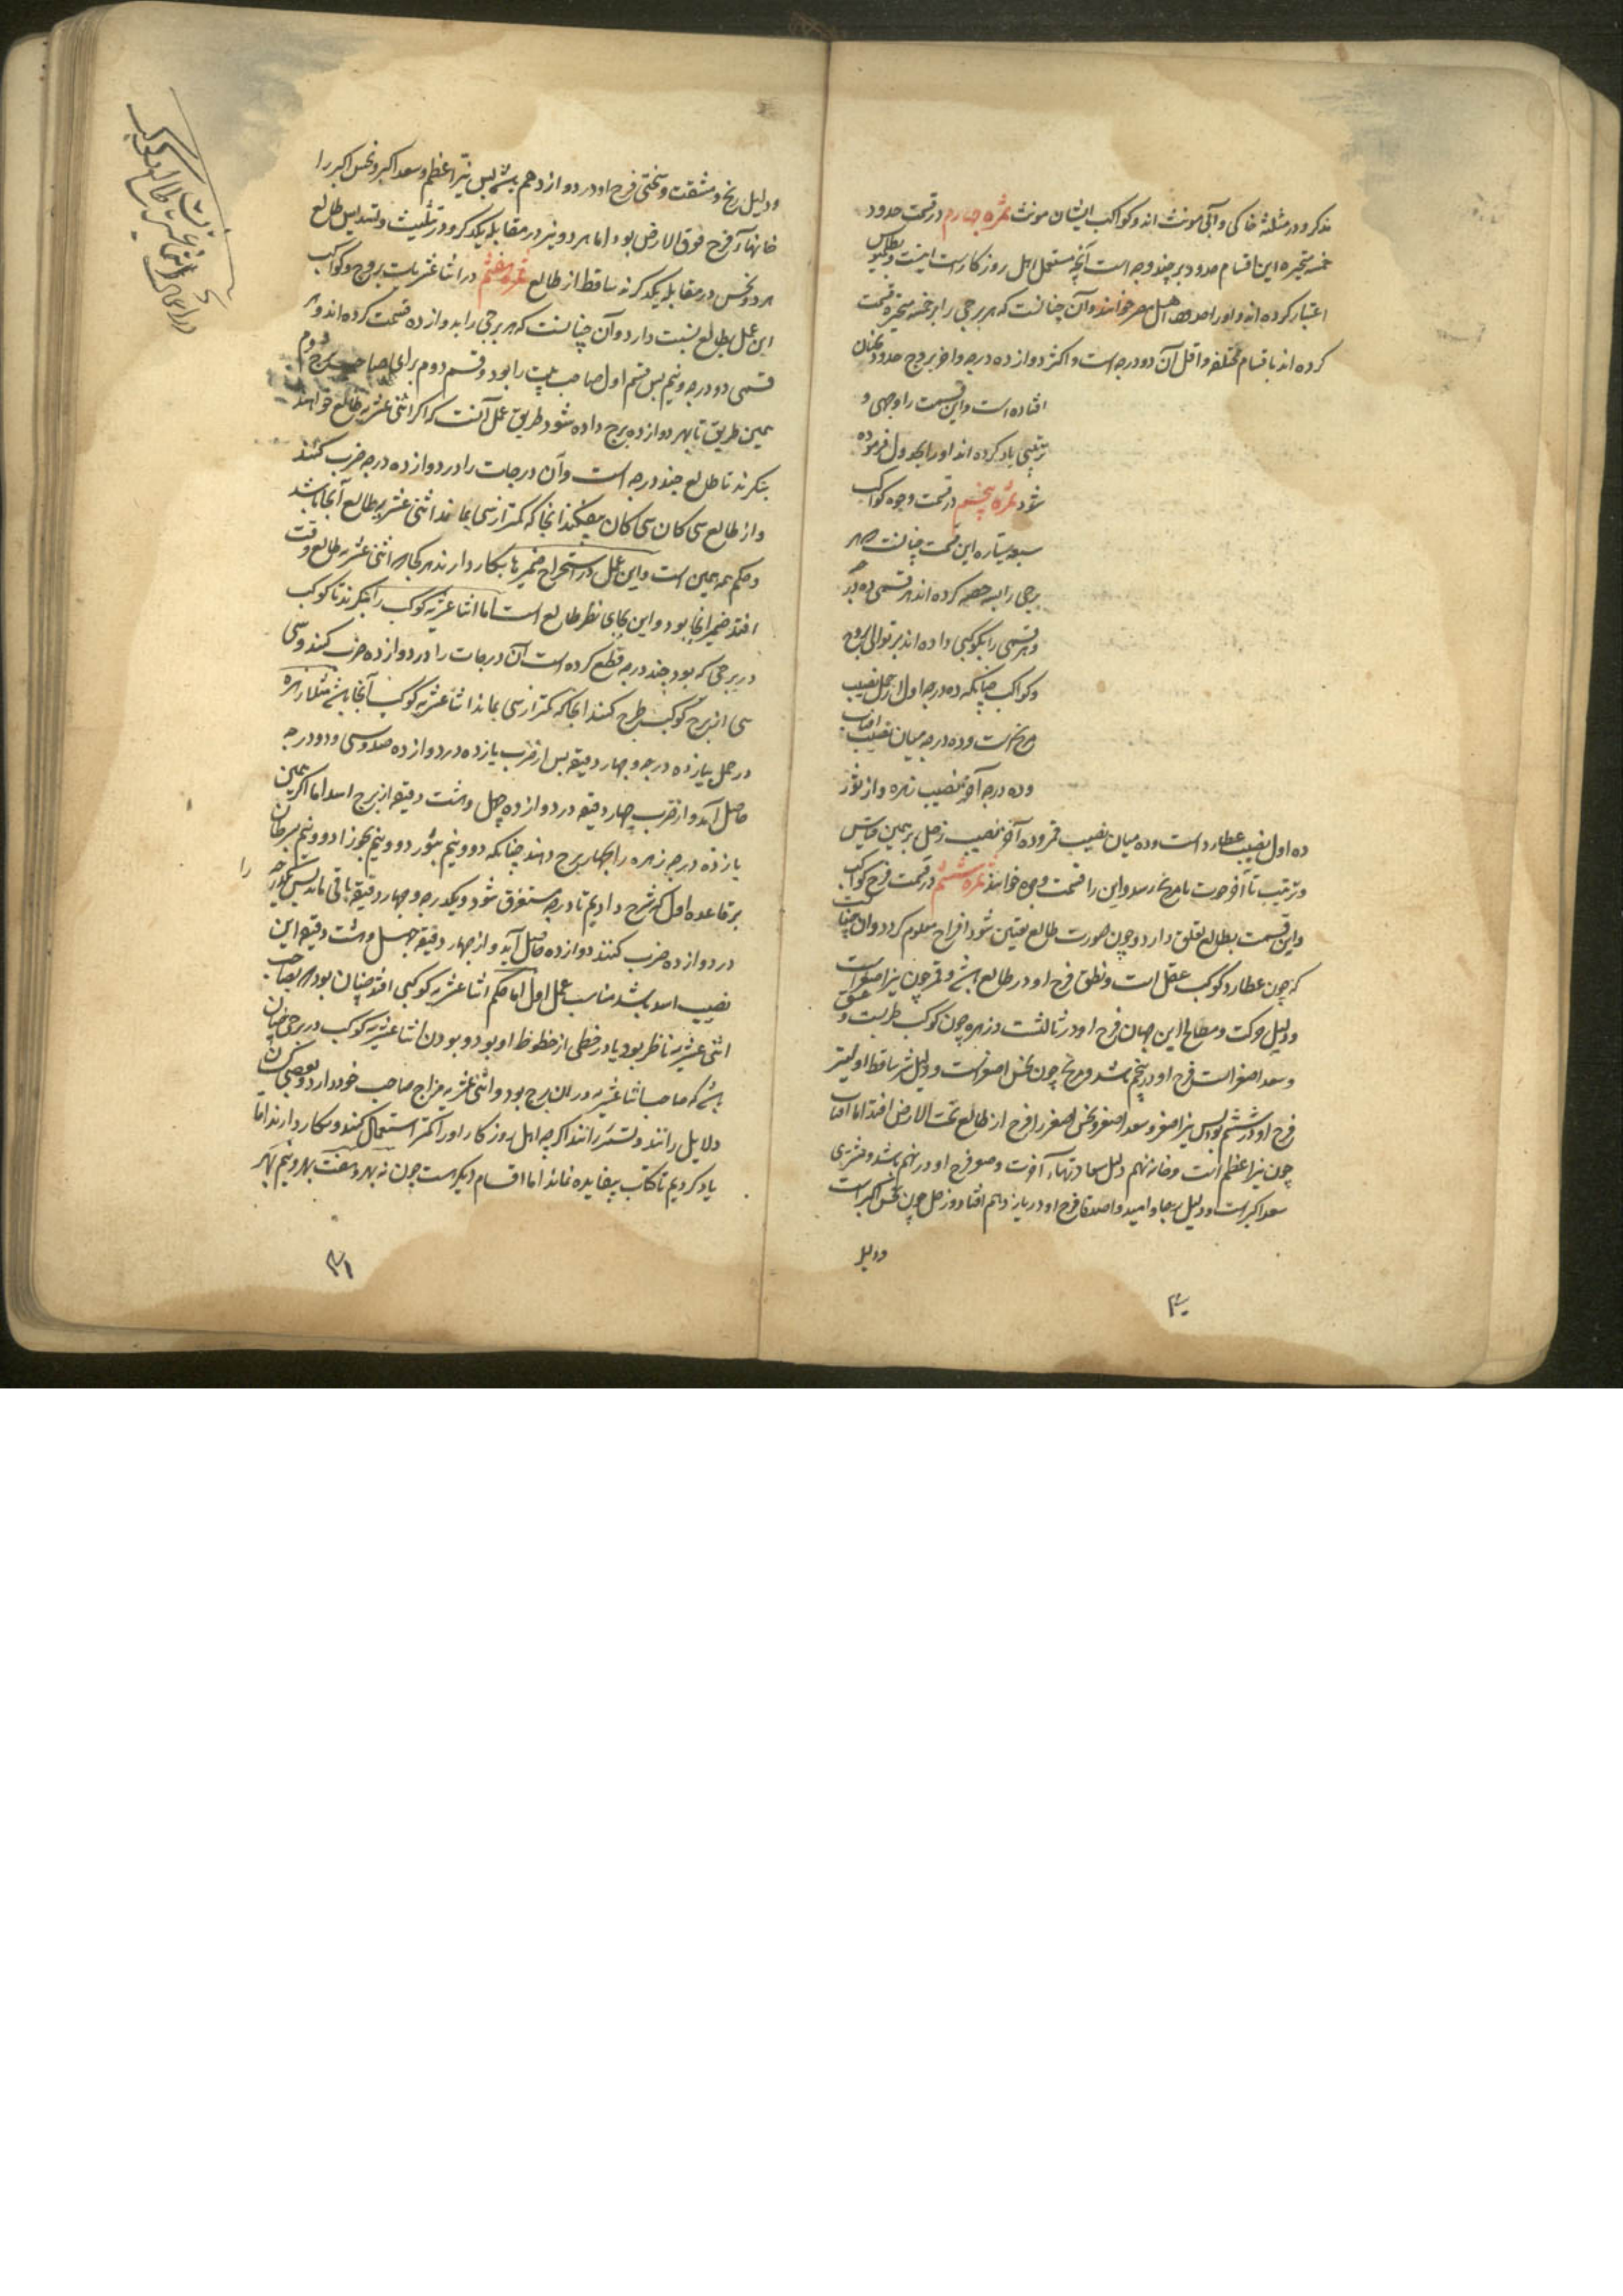 مذکر و در مثلثهٔ خاکی و آبی مونث اند و کواکب ایشان مونث ثمره چهارم در قسمت حدود
خمسه متحیره این اقسام حدود بر چند وجه است آنچه مستعمل اهل روزکارست اینست و بطلمیوس
اعتبار کرده اند و اورا حدود اهل مصر خوانند و آن چنانست که هر برجی را بر خمسه متحیره قسمت
کرده اند باقسام مختلفه و اقل آن دو درجه است و اکثر دوازده درجه و اخر بروج حدود نحسان
افتاده است و این قسمت را وجهی و
ترتیبی یاد کرده اند او را بجدول فرموده
شود ثمره پنجم در قسمت وجوه کواکب
سبعه سیاره این قسمت چنانست هر
برجی را بسه حصه کرده اند هر قسمی ده درجه
و هر قسمی را بکوکبی داده اند بر توالی بروج
و کواکب چنانکه ده درجه اول از حمل نصیب
مریخ است و ده درجه میان نصیب افتاب
و ده درجه آخر نصیب زهره و از ثور
ده اول نصیب عطارد است و ده میان نصیب قمر و ده آخر نصیب زحل بر همین قیاس
و ترتیب تا آخر حوت با مریخ رسد و این را قسمت وجوه خوانند ثمره ششم در قسمت فرح کواکب
و این قسمت بطالع تعلق دارد و چون صورت طالع معین شود افراح معلوم کردد و آن چنانست
که چون عطارد کوکب عقل است و نطق فرح او در طالع باشد و قمر چون نیر اصغر است
و دلیل حرکت و مصالح این جهان فرح او در ثالثست و زهره چون کوکب طربست و عشق
و سعد اصغر است فرح او در پنجم باشد و مریخ چون نحس اصغر است و دلیل شر ساقط اولیتر
فرح او در ششم بود پس نیر اصغر و سعد اصغر و نحس اصغر را فرح از طالع تحت الارض افتد اما افتاب
چون نیر اعظم است و خانه نهم دلیل سعادتهاء آخرت و فرح او در نهم باشد و مشتری
سعد اکبر است و دلیل رجا و امید و اصدقا فرح او در یازدهم افتاد و زحل چون نحس اکبر است
ودلیل
۴۰
و دلیل رنج و مشقت و سختی فرح او در دوازدهم باشد پس نیر اعظم و سعد اکبر و نحس اکبر را
خانهاء فرح فوق الارض بود اما هر دو نیر در مقابله یکدکر و در تثلیث و تسدیس طالع
هر دو نحس در مقابله یکدکر نه ساقط از طالع ثمره هفتم در اثنا عشریات بروج و کواکب
این عمل بطالع نسبت دارد و آن چنانست که هر برجی را بدوازده قسمت کرده اند هر
قسمی دو درجه و نیم پس قسم اول صاحب بیت را بود و قسم دوم برای صاحب برج دوم
همین طریق تا بهر دوازده برج داده شود طریق عمل آنست که اکر اثنی عشریه طالع خواهند
بنکرند تا طالع چند درجه است و آن درجات را در دوازده درجه ضرب کنند
و از طالع سی کان سی کان میفکنند انجا که کمتر از سی بماند اثنی عشریه طالع آنجا باشد
و حکم همه همین است و این عمل در استخراج ضمیرها بکار دارند هر کجا که اثنی عشریه طالع وقت
افتد ضمیر آنجا بود و این بجای نظر طالع است اما اثنا عشریه کوکب را بنکرند تا کوکب
در برجی که بود چند درجه قطع کرده است آن درجات را در دوازده ضرب کنند و سی
سی از برج کوکب طرح کنند انجا که کمتر از سی بماند اثنا عشریه کوکب آنجا باشد مثلا زهره
در حمل بیازده درجه و چهار دقیقه پس از ضرب یازده در دوازده صد و سی و دو درجه
حاصل آمد و از ضرب چهار دقیقه در دوازده چهل و هشت دقیقه از برج اسد اما اکر همین
یازده درجه زهره را بچهار برج دهند چنانکه دو و نیم بثور دو و نیم بجوزا دو و نیم سرطان را
بر قاعده اول که شرح دادیم تا ده درجه مستغرق شود و یکدرجه و چهار دقیقه باقی ماند پس یکدرجه
در دوازده ضرب کنند دوازده حاصل آید و از چهار دقیقه چهل و هشت دقیقه این
نصیب اسد باشد مناسب عمل اول اما حکم اثنا عشریه کوکبی افتد چنان بود که صاحب
اثنی عشریه ناظر بود یا در حظی از حظوظ او بود و بودن اثنا عشریه کوکب در برجی چنان
باشد که صاحب اثنا عشریه در آن برج بود و اثنی عشریه مزاج صاحب خود دارد و بعضی کران
دلایل دانند اکرچه اهل روزکار او را کمتر استعمال کنند و بکار دارند اما
یاد کردیم تا کتاب بیفایده نماند اما اقسام دیکر است چون نه بهر و هفت بهر و نیم بهر
۴۱